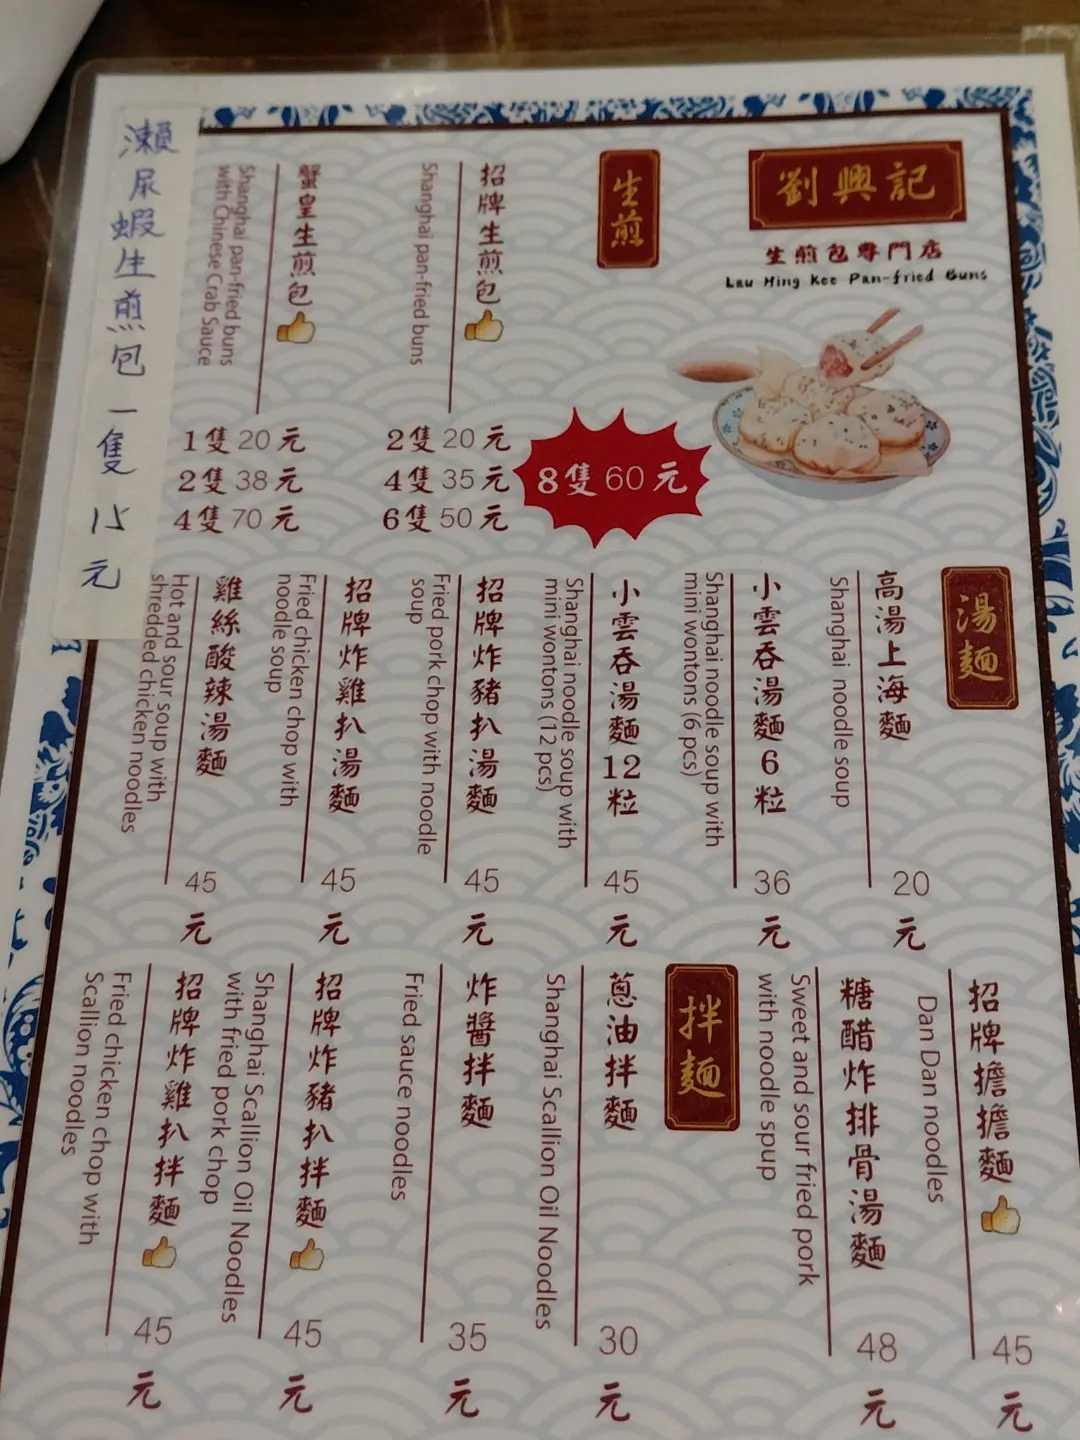 劉興記
生煎包專門店
Lau Hing Kee Pan-fried Buns
生煎
招牌生煎包
Shanghai pan-fried buns
2隻 20 元
4隻 35 元
6隻 50 元
8隻 60 元
蟹皇生煎包
Shanghai pan-fried buns
with Chinese Crab Sauce
1隻 20 元
2隻 38 元
4隻 70 元
瀨尿蝦生煎包 一隻 15 元
湯麵
高湯上海麵
Shanghai noodle soup
20 元
小雲吞湯麵 6 粒
Shanghai noodle soup with
mini wontons (6 pcs)
36 元
小雲吞湯麵 12 粒
Shanghai noodle soup with
mini wontons (12 pcs)
45 元
招牌炸豬扒湯麵
Fried pork chop with noodle
soup
45 元
招牌炸雞扒湯麵
Fried chicken chop with
noodle soup
45 元
雞絲酸辣湯麵
Hot and sour soup with
shredded chicken noodles
45 元
招牌擔擔麵
Dan Dan noodles
45 元
糖醋炸排骨湯麵
Sweet and sour fried pork
with noodle spup
48 元
拌麵
蔥油拌麵
Shanghai Scallion Oil Noodles
30 元
炸醬拌麵
Fried sauce noodles
35 元
招牌炸豬扒拌麵
Shanghai Scallion Oil Noodles
with fried pork chop
45 元
招牌炸雞扒拌麵
Fried chicken chop with
Scallion noodles
45 元